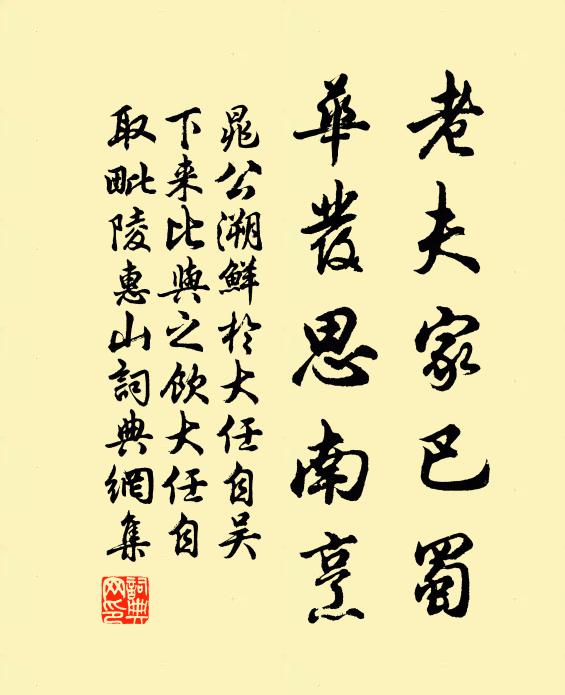 老夫家巴蜀
華發思南烹
晁公溯鮮於大任自吳
下来比與之飲大任自
取毗陵惠山詞典網集
詞典
网印